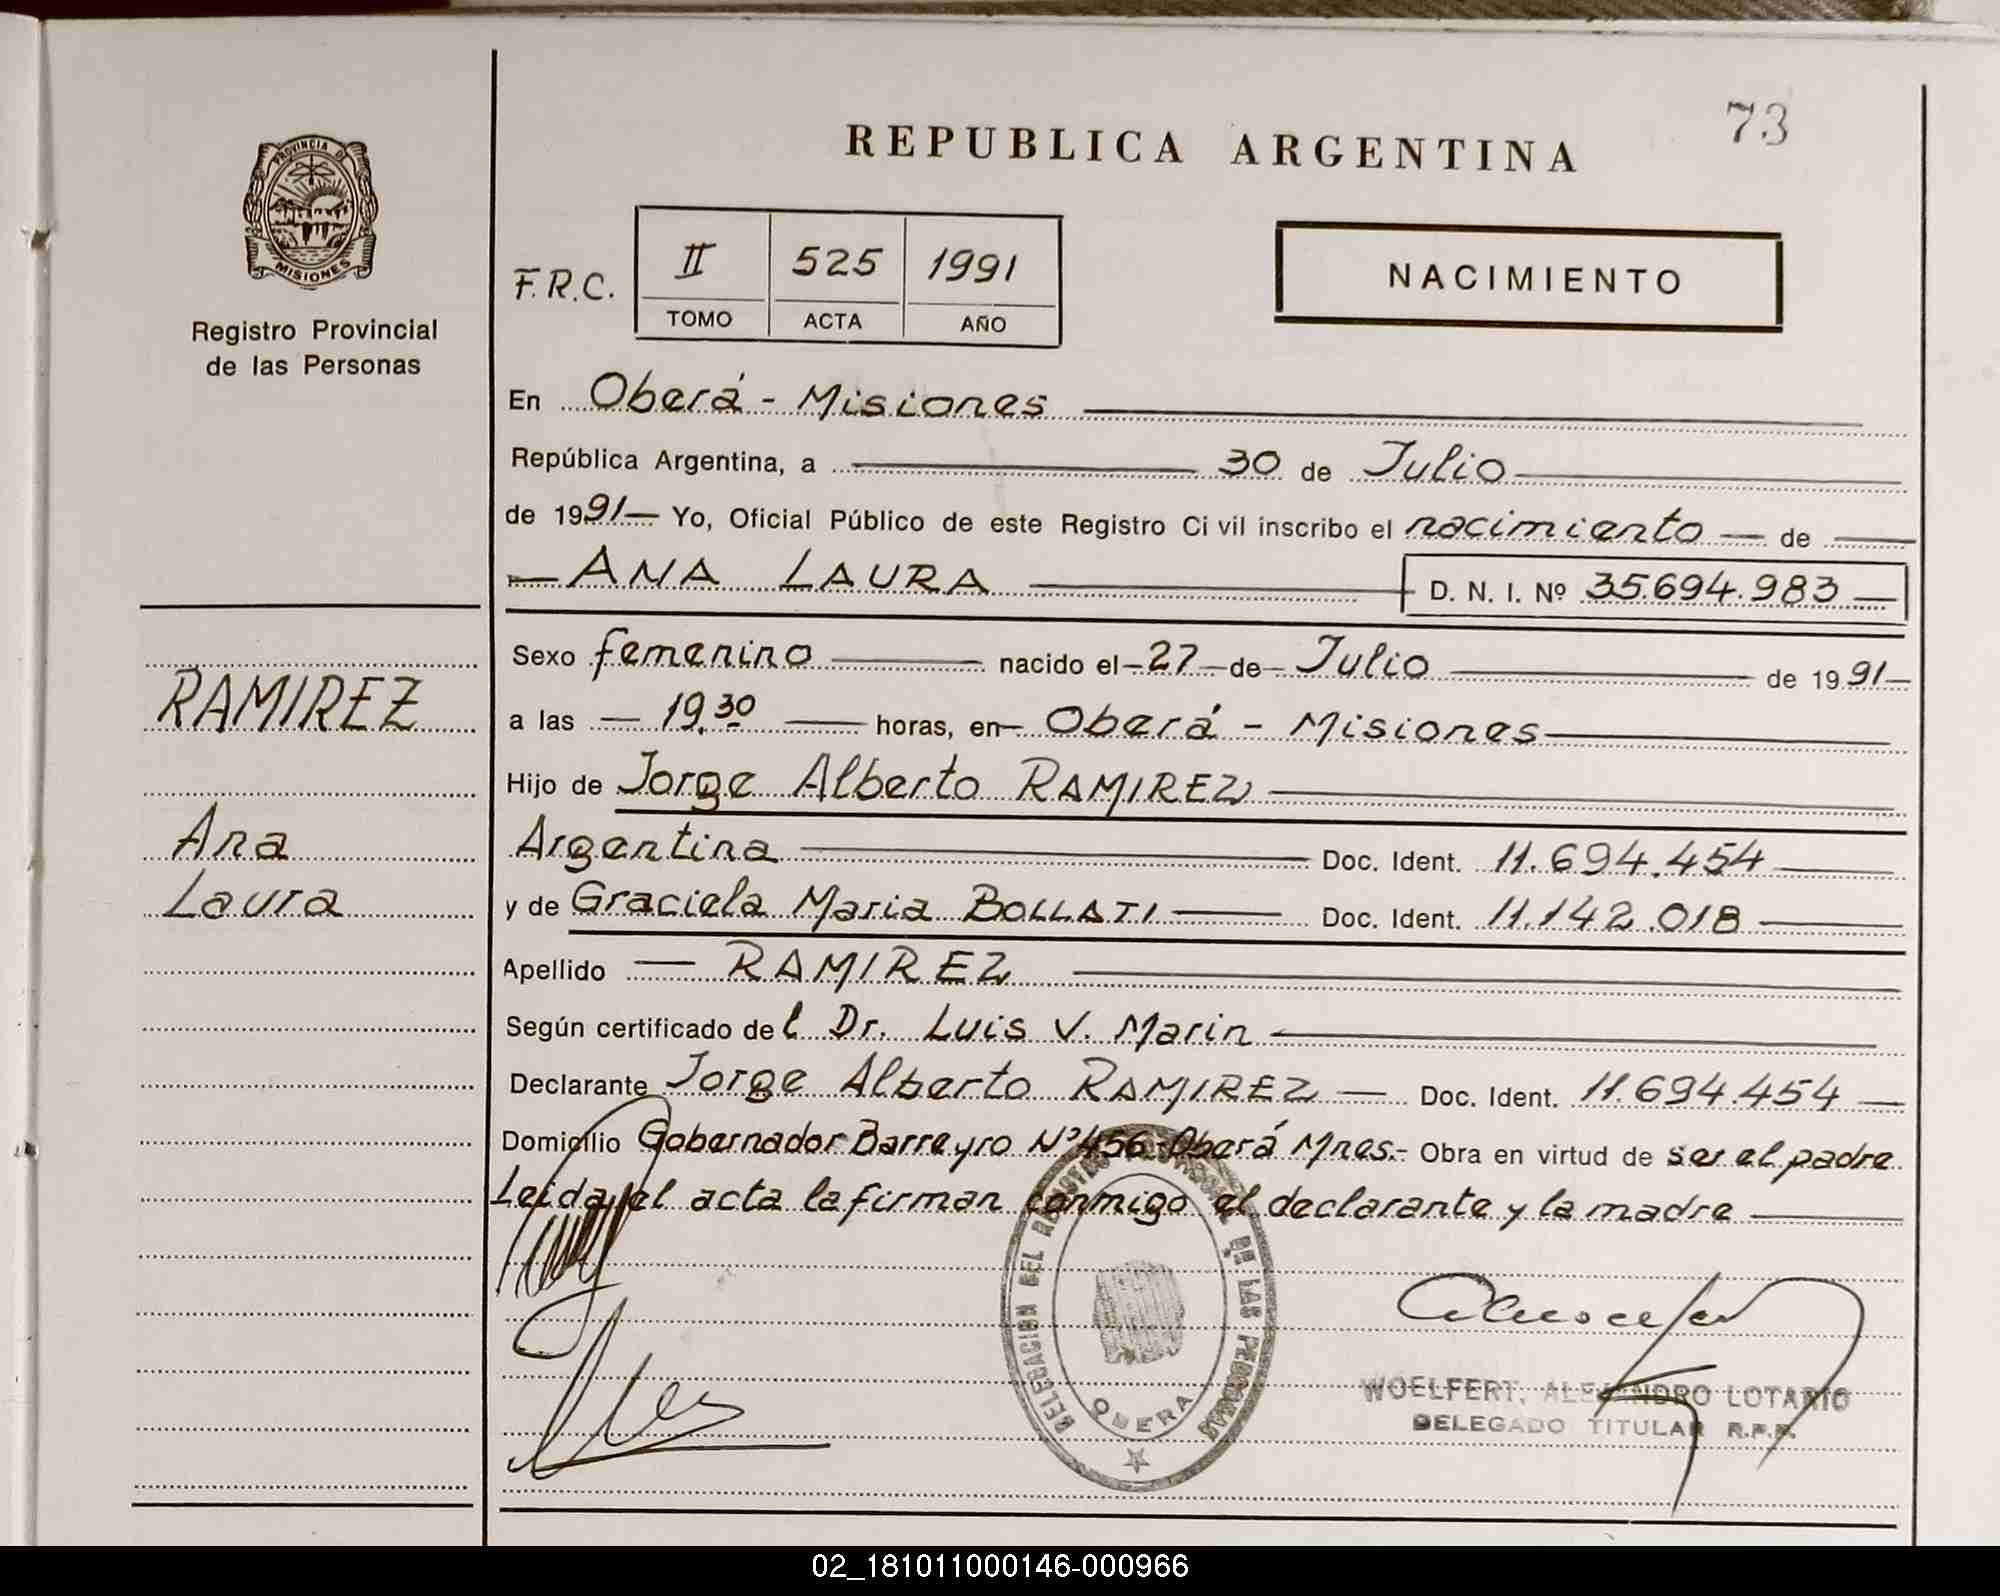 73
REPUBLICA ARGENTINA
PROVINCIA DE
MISIONES
Registro Provincial
de las Personas
F.R.C.
II 525 1991
TOMO ACTA AÑO
NACIMIENTO
En Oberá - Misiones
República Argentina, a 30 de Julio
de 1991 Yo, Oficial Público de este Registro Ci vil inscribo el nacimiento de
ANA LAURA D. N. I. Nº 35.694.983
Sexo femenino nacido el 27 de Julio de 1991
a las 19.30 horas, en Oberá - Misiones
Hijo de Jorge Alberto RAMIREZ
Argentina Doc. Ident. 11.694.454
y de Graciela Maria BOLLATI Doc. Ident. 11.142.018
Apellido RAMIREZ
Según certificado del Dr. Luis V. Marin
Declarante Jorge Alberto RAMIREZ Doc. Ident. 11.694.454
Domicilio Gobernador Barreyro Nº 456-Oberá Mnes.- Obra en virtud de ser el padre
Leida el acta la firman conmigo el declarante y la madre
RAMIREZ
Ana
Laura
DELEGACION DEL REGISTRO PROVINCIAL DE LAS PERSONAS
OBERA
WOELFERT, ALEJANDRO LOTARIO
DELEGADO TITULAR R.P.P.
02_181011000146-000966